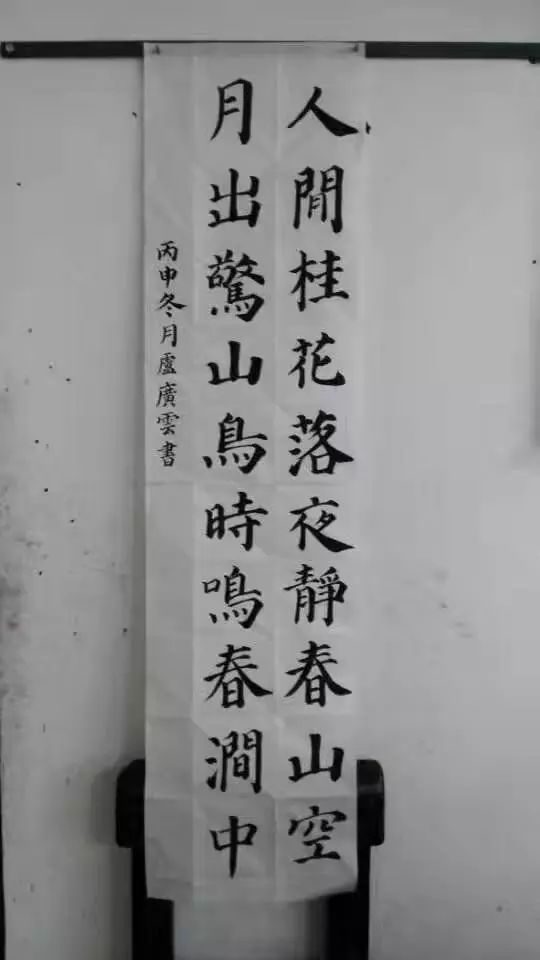 人閒桂花落夜靜春山空
月出驚山鳥時鳴春澗中
丙申冬月盧廣雲書